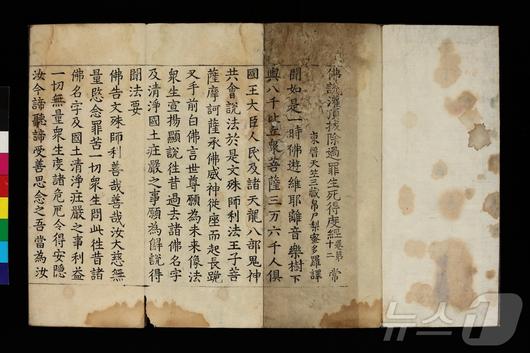 佛說灌頂拔除過罪生死得度經卷第十二 常
東晉天竺三藏帛尸梨蜜多羅譯
聞如是一時佛遊維耶離音樂樹下
與八千比丘衆菩薩三万六千人俱
國王大臣人民及諸天龍八部鬼神
共會說法於是文殊師利法王子菩
薩摩訶薩承佛威神從座而起長跪
叉手前白佛言世尊願為未來像法
衆生宣揚顯說往昔過去諸佛名字
及清淨國土莊嚴之事願為解說得
聞法要
佛告文殊師利善哉善哉汝大慈無
量愍念罪苦一切衆生問此往昔諸
佛名字及國土清淨莊嚴之事利益
一切無量衆生度諸危厄令得安隱
汝今諦聽諦受善思念之吾當為汝
뉴스1